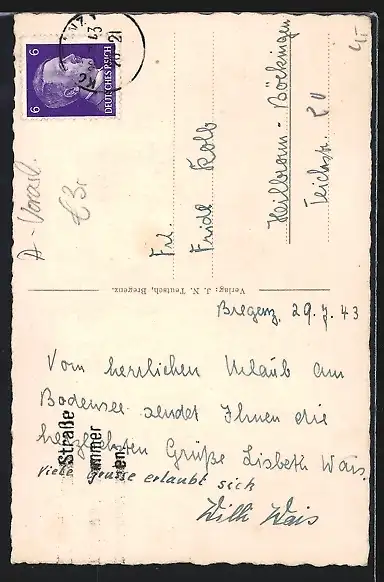 6 6
DEUTSCHES REICH
43
21
A-Vorarlb.
Frl.
Fridl Kolb
Heilbronn-Böckingen
Teichstr. 20
Verlag: J. N. Teutsch, Bregenz.
Bregenz, 29.7.43
Vom herrlichen Urlaub am
Bodensee sendet Ihnen die
herzlichsten Grüße Lisbeth Wais.
Viele Grüsse erlaubt sich
Willi Wais
Straße
ummer
en